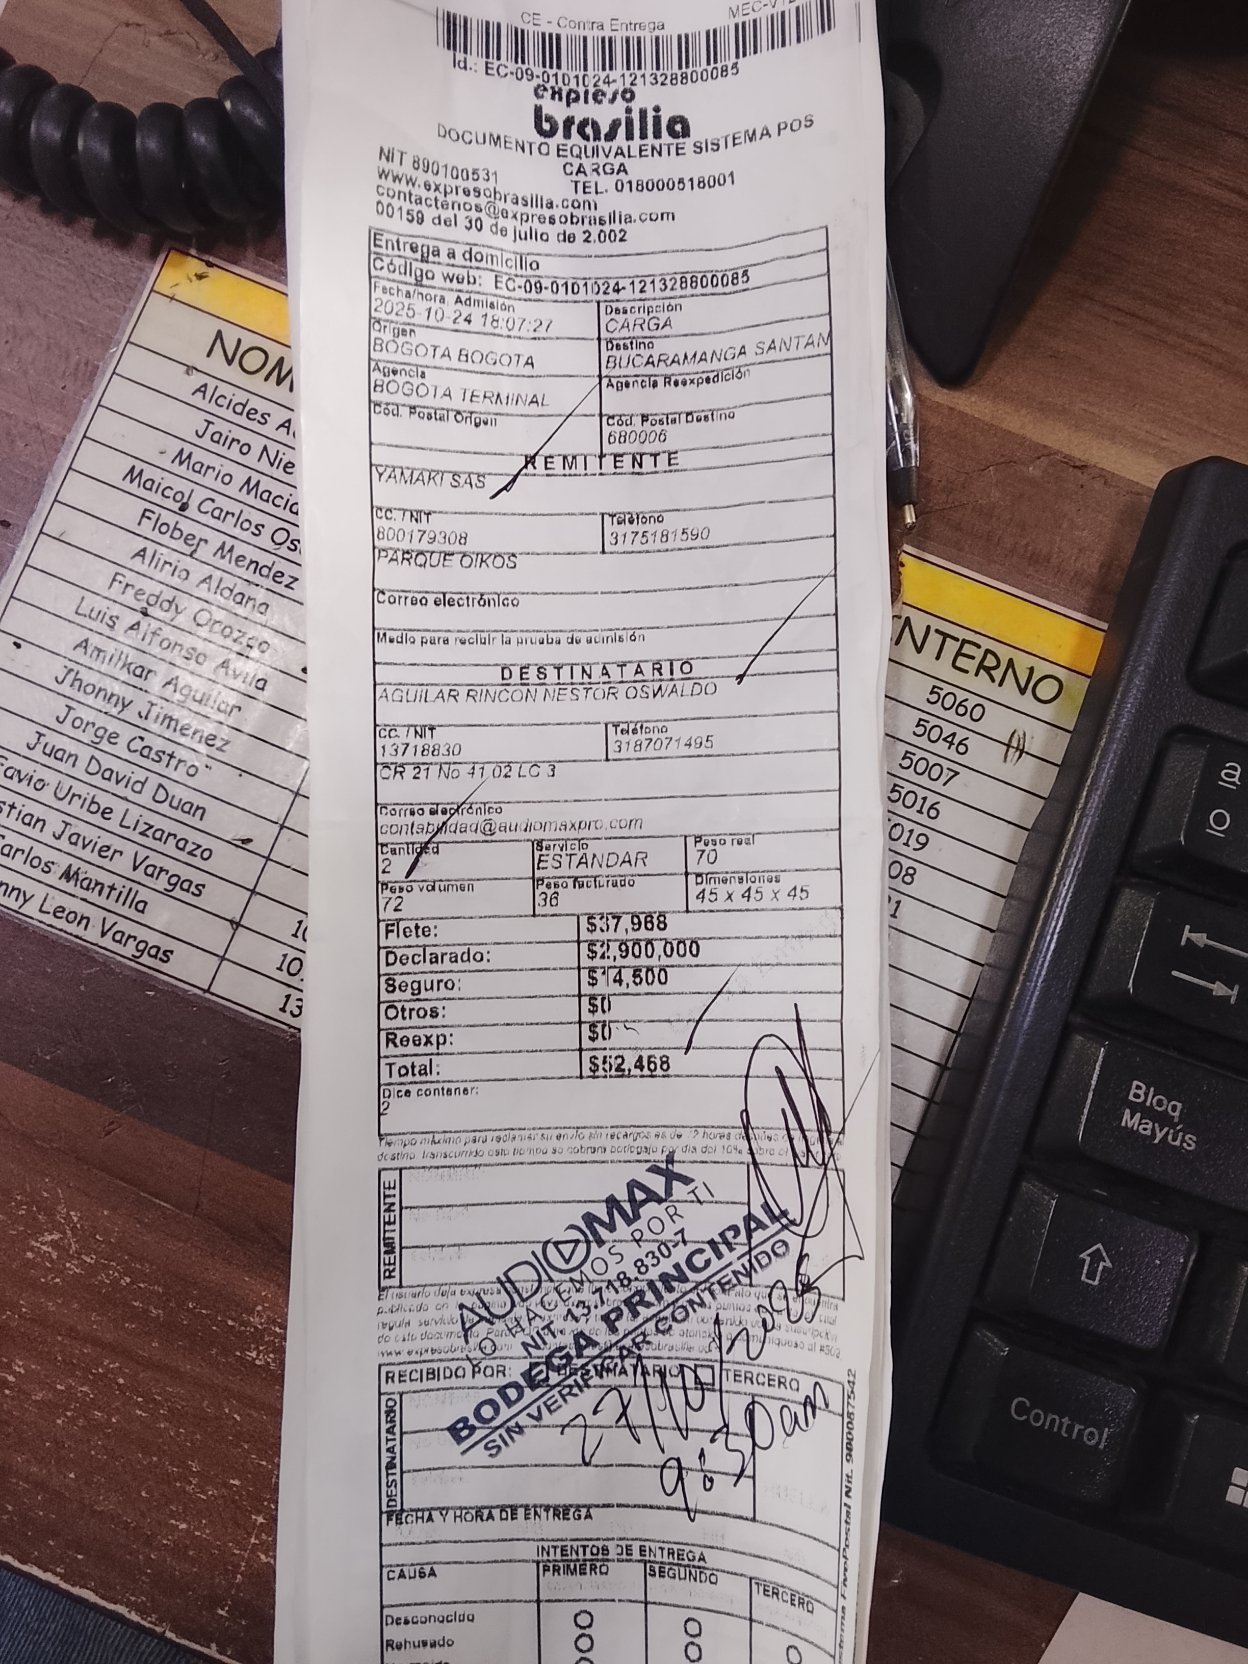 CE - Contra Entrega
Id.: EC-09-0101024-121328800085
expreso
brasilia
DOCUMENTO EQUIVALENTE SISTEMA POS
CARGA
NIT 890100531
TEL. 018000518001
www.expresobrasilia.com
contactenos@expresobrasilia.com
00159 del 30 de julio de 2.002
Entrega a domicilio
Código web: EC-09-0101024-121328800085
Fecha/hora. Admisión
2025-10-24 18:07:27
Descripción
CARGA
Origen
BOGOTA BOGOTA
Destino
BUCARAMANGA SANTAN
Agencia
BOGOTA TERMINAL
Agencia Reexpedición
Cód. Postal Origen
Cód. Postal Destino
680006
REMITENTE
YAMAKI SAS
CC. / NIT
800179308
Teléfono
3175181590
PARQUE OIKOS
Correo electrónico
Medio para recibir la prueba de admisión
DESTINATARIO
AGUILAR RINCON NESTOR OSWALDO
CC. / NIT
13718830
Teléfono
3187071495
CR 21 No 41 02 LC 3
Correo electrónico
contabilidad@audiomaxpro.com
Cantidad
2
Servicio
ESTANDAR
Peso real
70
Peso volumen
72
Peso facturado
36
Dimensiones
45 x 45 x 45
Flete: $37,968
Declarado: $2,900,000
Seguro: $14,500
Otros: $0
Reexp: $0
Total: $52,468
Dice contener:
2
Tiempo máximo para reclamar su envío sin recargos es de 72 horas
destino, transcurrido este tiempo se cobrara bodegaje por día del 10%
REMITENTE
AUDIOMAX
LO HACEMOS POR TI
NIT. 13.718.830-7
BODEGA PRINCIPAL
SIN VERIFICAR CONTENIDO
27/10/2025
9:30am
RECIBIDO POR: DESTINATARIO TERCERO
DESTINATARIO
FECHA Y HORA DE ENTREGA
INTENTOS DE ENTREGA
CAUSA PRIMERO SEGUNDO TERCERO
Desconocido
Rehusado
Nit. 900087542
NOM
Alcides A
Jairo Nie
Mario Macia
Maicol Carlos Os
Flober Mendez
Alirio Aldana
Freddy Orozco
Luis Alfonso Avila
Amilkar Aguilar
Jhonny Jimenez
Jorge Castro
Juan David Duan
Favio Uribe Lizarazo
stian Javier Vargas
arlos Mantilla
nny Leon Vargas
10
10
13
NTERNO
5060
5046
5007
5016
019
08
1
a
o
Bloq
Mayús
Control